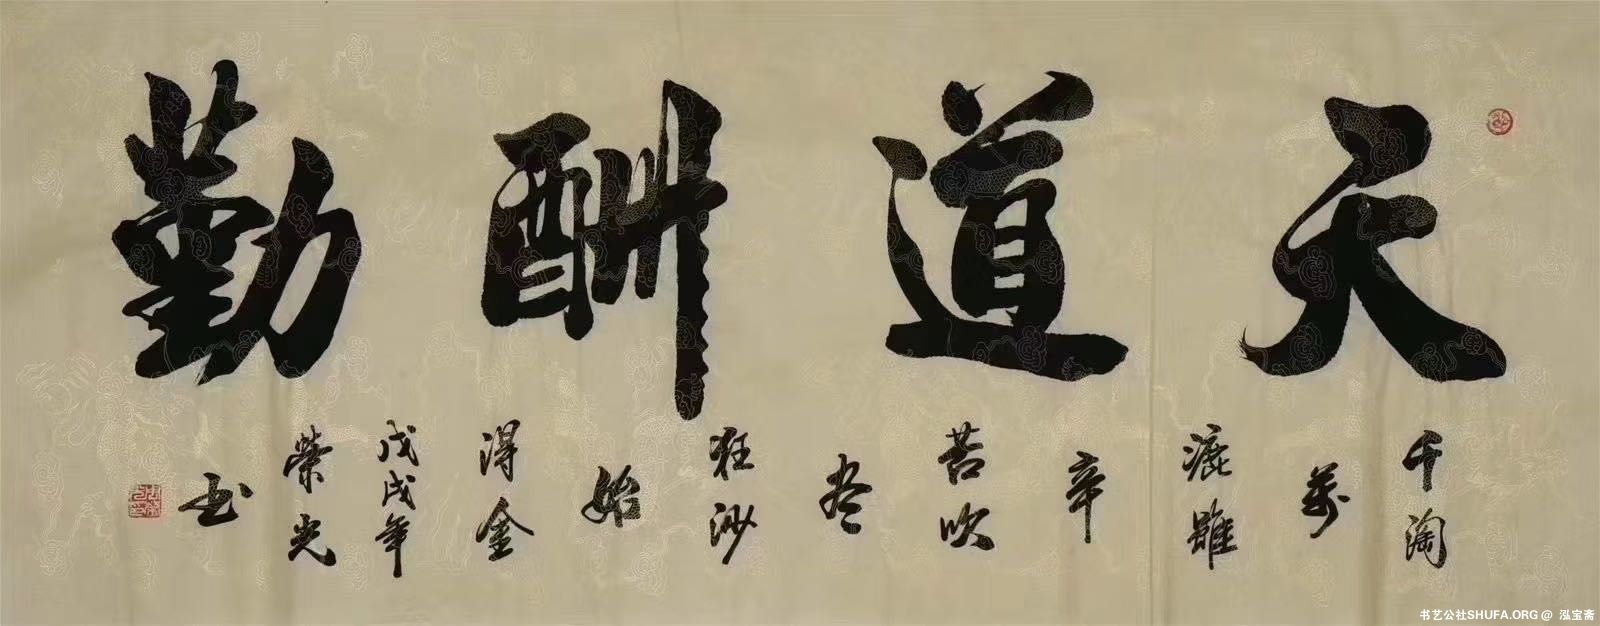 天道酬勤
千淘
万
漉雖
辛
苦吹
尽
狂沙
始
得金
戊戌年
榮光
书
书艺公社SHUFA.ORG @ 泓宝斋